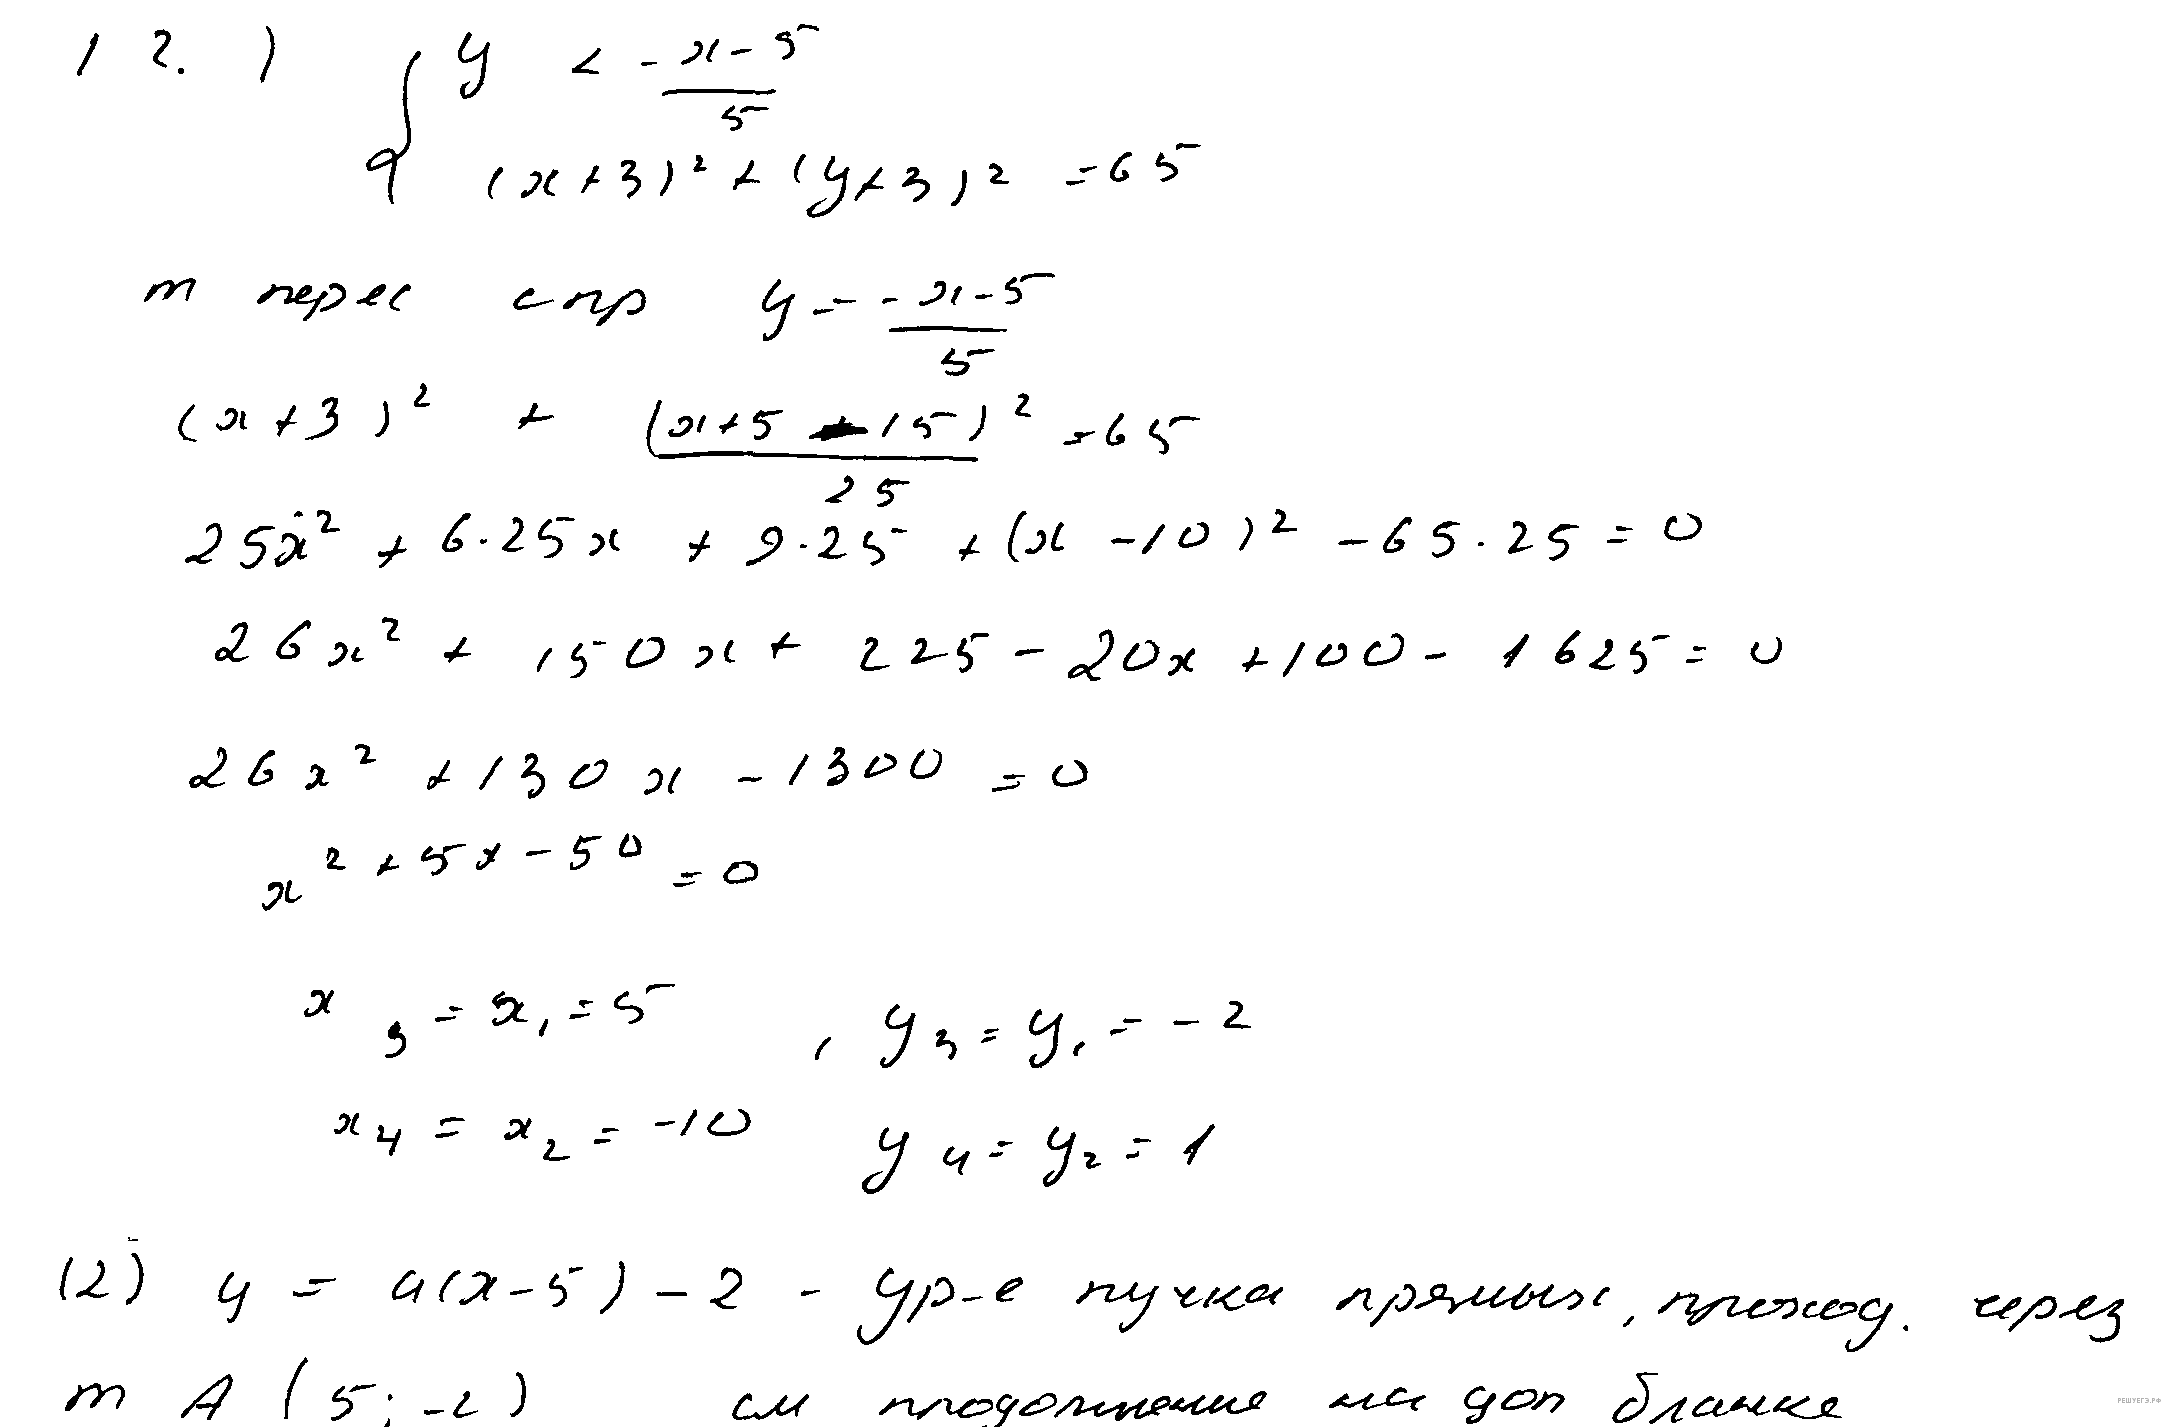 12.) { y < (-x-5)/5
(x+3)² + (y+3)² = 65
т перес с пр y = (-x-5)/5
(x+3)² + (x+5-15)²/25 = 65
25x² + 6·25x + 9·25 + (x-10)² - 65·25 = 0
26x² + 150x + 225 - 20x + 100 - 1625 = 0
26x² + 130x - 1300 = 0
x² + 5x - 50 = 0
x₃ = x₁ = 5 , y₃ = y₁ = -2
x₄ = x₂ = -10 y₄ = y₂ = 1
(2) y = a(x-5) - 2 - ур-е пучка прямых, проход. через
т A (5; -2) см продолжение на доп бланке
РЕШУЕГЭ.РФ